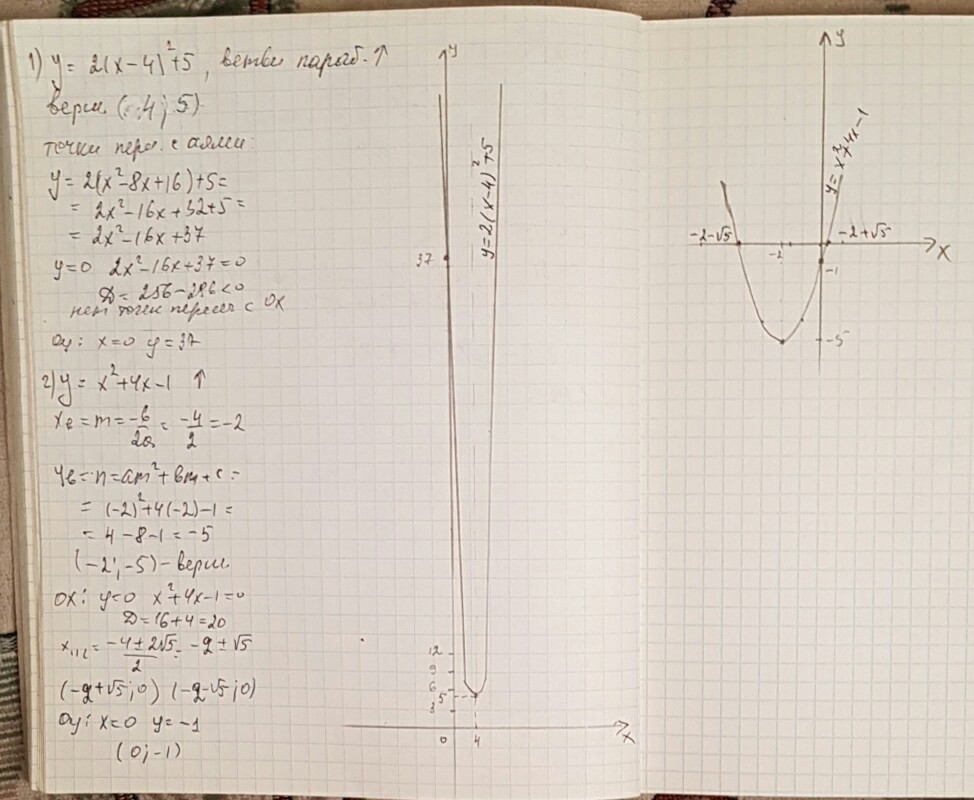 1) y = 2(x-4)²+5, ветви параб. ↑
верш (4; 5)
точки пер. с осями:
y = 2(x²-8x+16)+5=
= 2x²-16x+32+5=
= 2x²-16x+37
y=0 2x²-16x+37=0
D = 256-296<0
нет точек пересеч с OX
Oy: x=0 y=37
2) y = x²+4x-1 ↑
xв = m = -b/2a = -4/2 = -2
yв = n = am²+bm+c =
= (-2)²+4(-2)-1 =
= 4-8-1 = -5
(-2; -5) - верш
OX: y=0 x²+4x-1=0
D=16+4=20
x₁,₂ = -4±2√5/2 = -2±√5
(-2+√5; 0) (-2-√5; 0)
Oy: x=0 y=-1
(0; -1)
y
y=2(x-4)²+5
37
12
9
6
5
3
0
4
x
y
y=x²+4x-1
-2-√5
-2
-2+√5
x
-1
-5